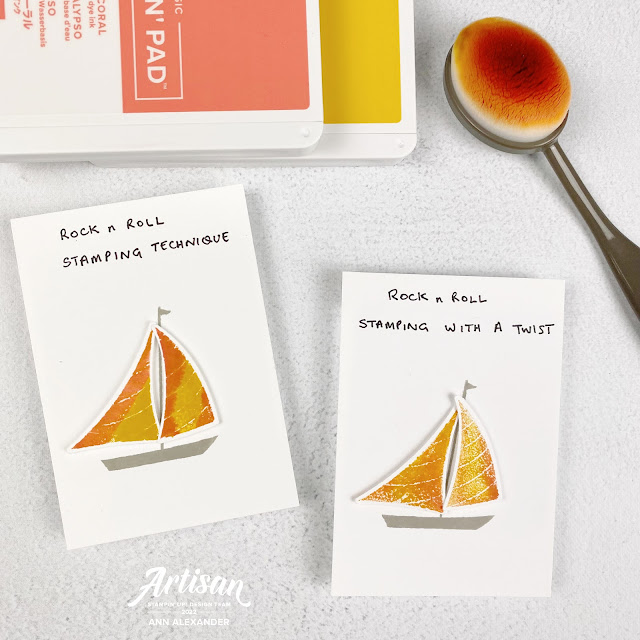 CORAL
dye ink
CALYPSO
base d'eau
PSO
Wasserbasis
N' PAD™
Rock n Roll
Stamping Technique
Rock n Roll
Stamping with a Twist
Artisan
STAMPIN' UP! DESIGN TEAM
2022
ANN ALEXANDER